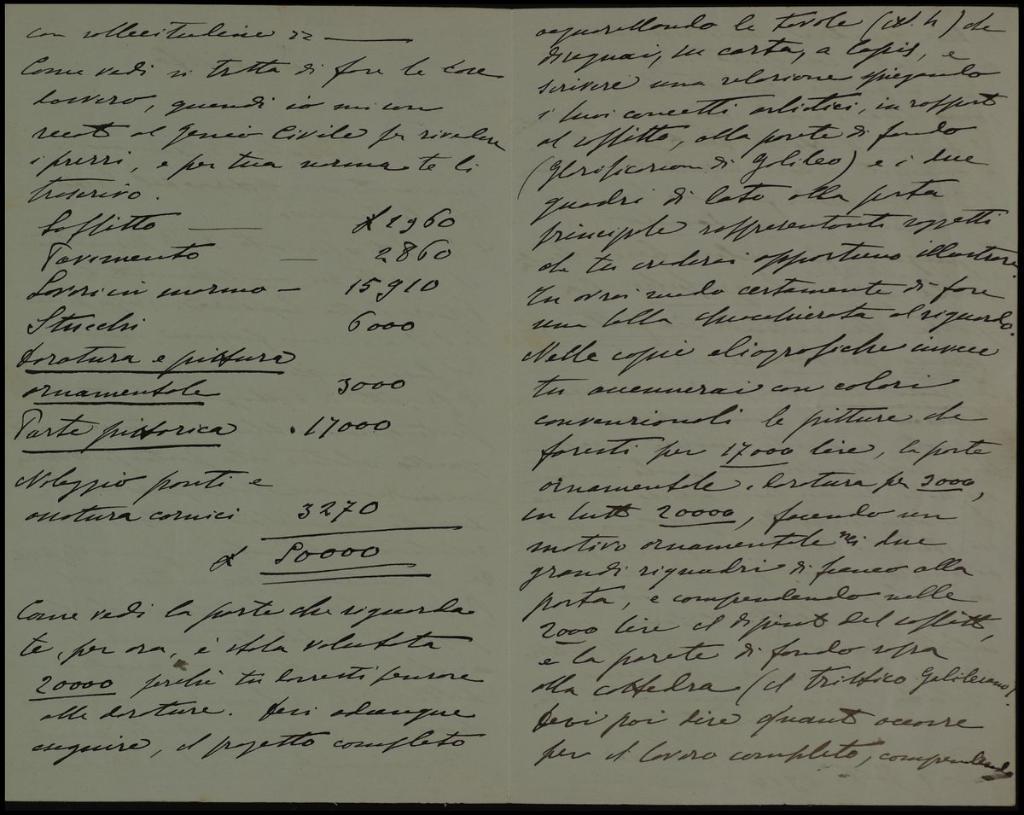 con sollecitudine »
Come vedi si tratta di fare le cose
davvero, quindi io mi son
recato al Genio Civile per rivedere
i prezzi, e per tua norma te li
trascrivo.
Soffitto — £ 1960
Pavimento — 2860
Lavori in marmo — 15910
Stucchi 6000
Doratura e pittura
ornamentale 3000
Parte pittorica . 17000
Noleggio ponti e
cornici 3270
£ 50000
Come vedi la parte che riguarda
te, per ora, è stata valutata
20000 perché tu dovresti pensare
alle dorature. Devi adunque
eseguire, il progetto completo
acquarellando le tavole (N. 4) che
disegnai, su carta, a lapis, e
scrivere una relazione spiegando
i tuoi concetti artistici, in rapporto
al soffitto, alla parete di fondo
(Glorificazione di Galileo) e i due
quadri di lato alla porta
principale rappresentanti soggetti
che tu crederai opportuno illustrare.
Tu avrai modo certamente di fare
una bella chiacchierata al riguardo.
Nelle copie eliografiche invece
tu accennerai con colori
convenzionali le pitture che
faresti per 17000 lire, la parte
ornamentale e doratura per 3000,
in tutto 20000, facendo un
motivo ornamentale nei due
grandi riquadri di fianco alla
porta, e comprendendo nelle
2000 lire il dipinto del soffitto,
e la parete di fondo sopra
alla cattedra (il trittico Galileiano)
Devi poi dire quanto occorre
per il lavoro completo, comprendendo